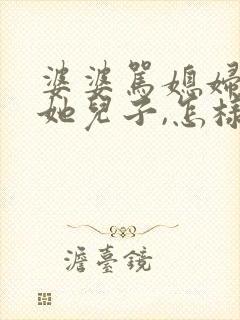 婆婆罵媳婦
她兒子,怎樣
澹臺鏡